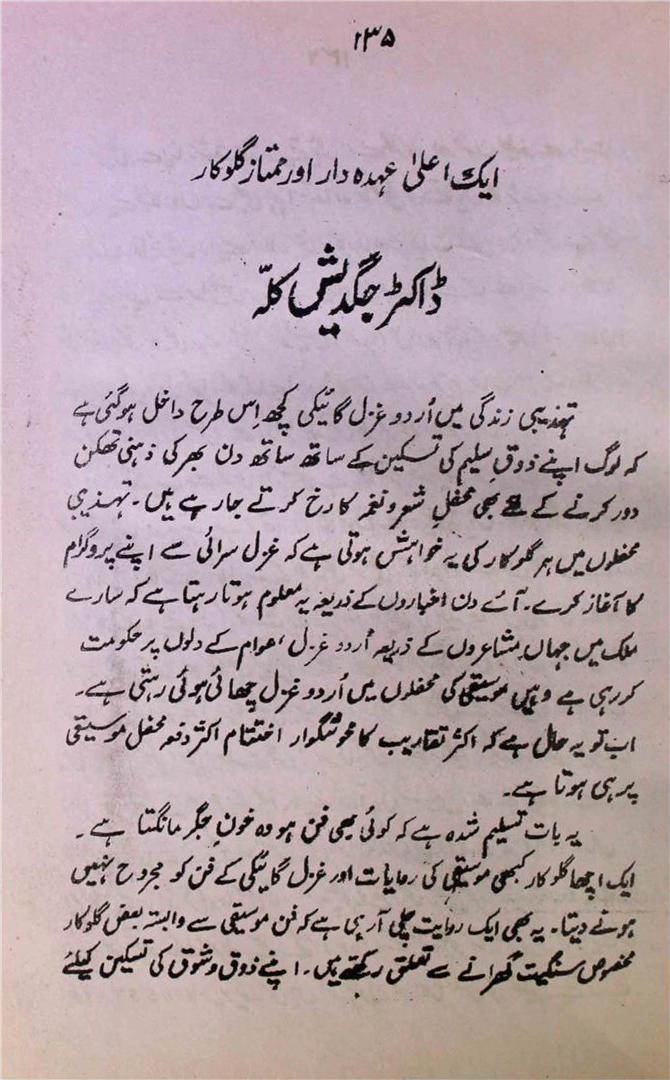 ۱۳۵
ایک اعلیٰ عہدہ دار اور ممتاز گلوکار
ڈاکٹر جگدیش کلّہ
تہذیبی زندگی میں اُردو غزل گائیکی کچھ اِس طرح داخل ہوگئی ہے
کہ لوگ اپنے ذوقِ سلیم کی تسکین کے ساتھ ساتھ دن بھر کی ذہنی تھکن
دور کرنے کے لئے بھی محفلِ شعر و نغمہ کا رخ کرتے جارہے ہیں۔ تہذیبی
محفلوں میں ہر گلوکار کی یہ خواہش ہوتی ہے کہ غزل سرائی سے اپنے پروگرام
کا آغاز کرے۔ آئے دن اخباروں کے ذریعہ یہ معلوم ہوتا رہتا ہے کہ سارے
ملک میں جہاں مشاعروں کے ذریعہ اُردو غزل، عوام کے دلوں پر حکومت
کررہی ہے وہیں موسیقی کی محفلوں میں اُردو غزل چھائی ہوئی رہتی ہے۔
اب تو یہ حال ہے کہ اکثر تقاریب کا خوشگوار اختتام اکثر دفعہ محفل موسیقی
پر ہی ہوتا ہے۔
یہ بات تسلیم شدہ ہے کہ کوئی بھی فن ہو وہ خونِ جگر مانگتا ہے۔
ایک اچھا گلوکار کبھی موسیقی کی روایات اور غزل گائیکی کے فن کو مجروح نہیں
ہونے دیتا۔ یہ بھی ایک روایت چلی آرہی ہے کہ فن موسیقی سے وابستہ بعض گلوکار
مخصوص سنگیت گھرانے سے تعلق رکھتے ہیں۔ اپنے ذوق و شوق کی تسکین کیلئے